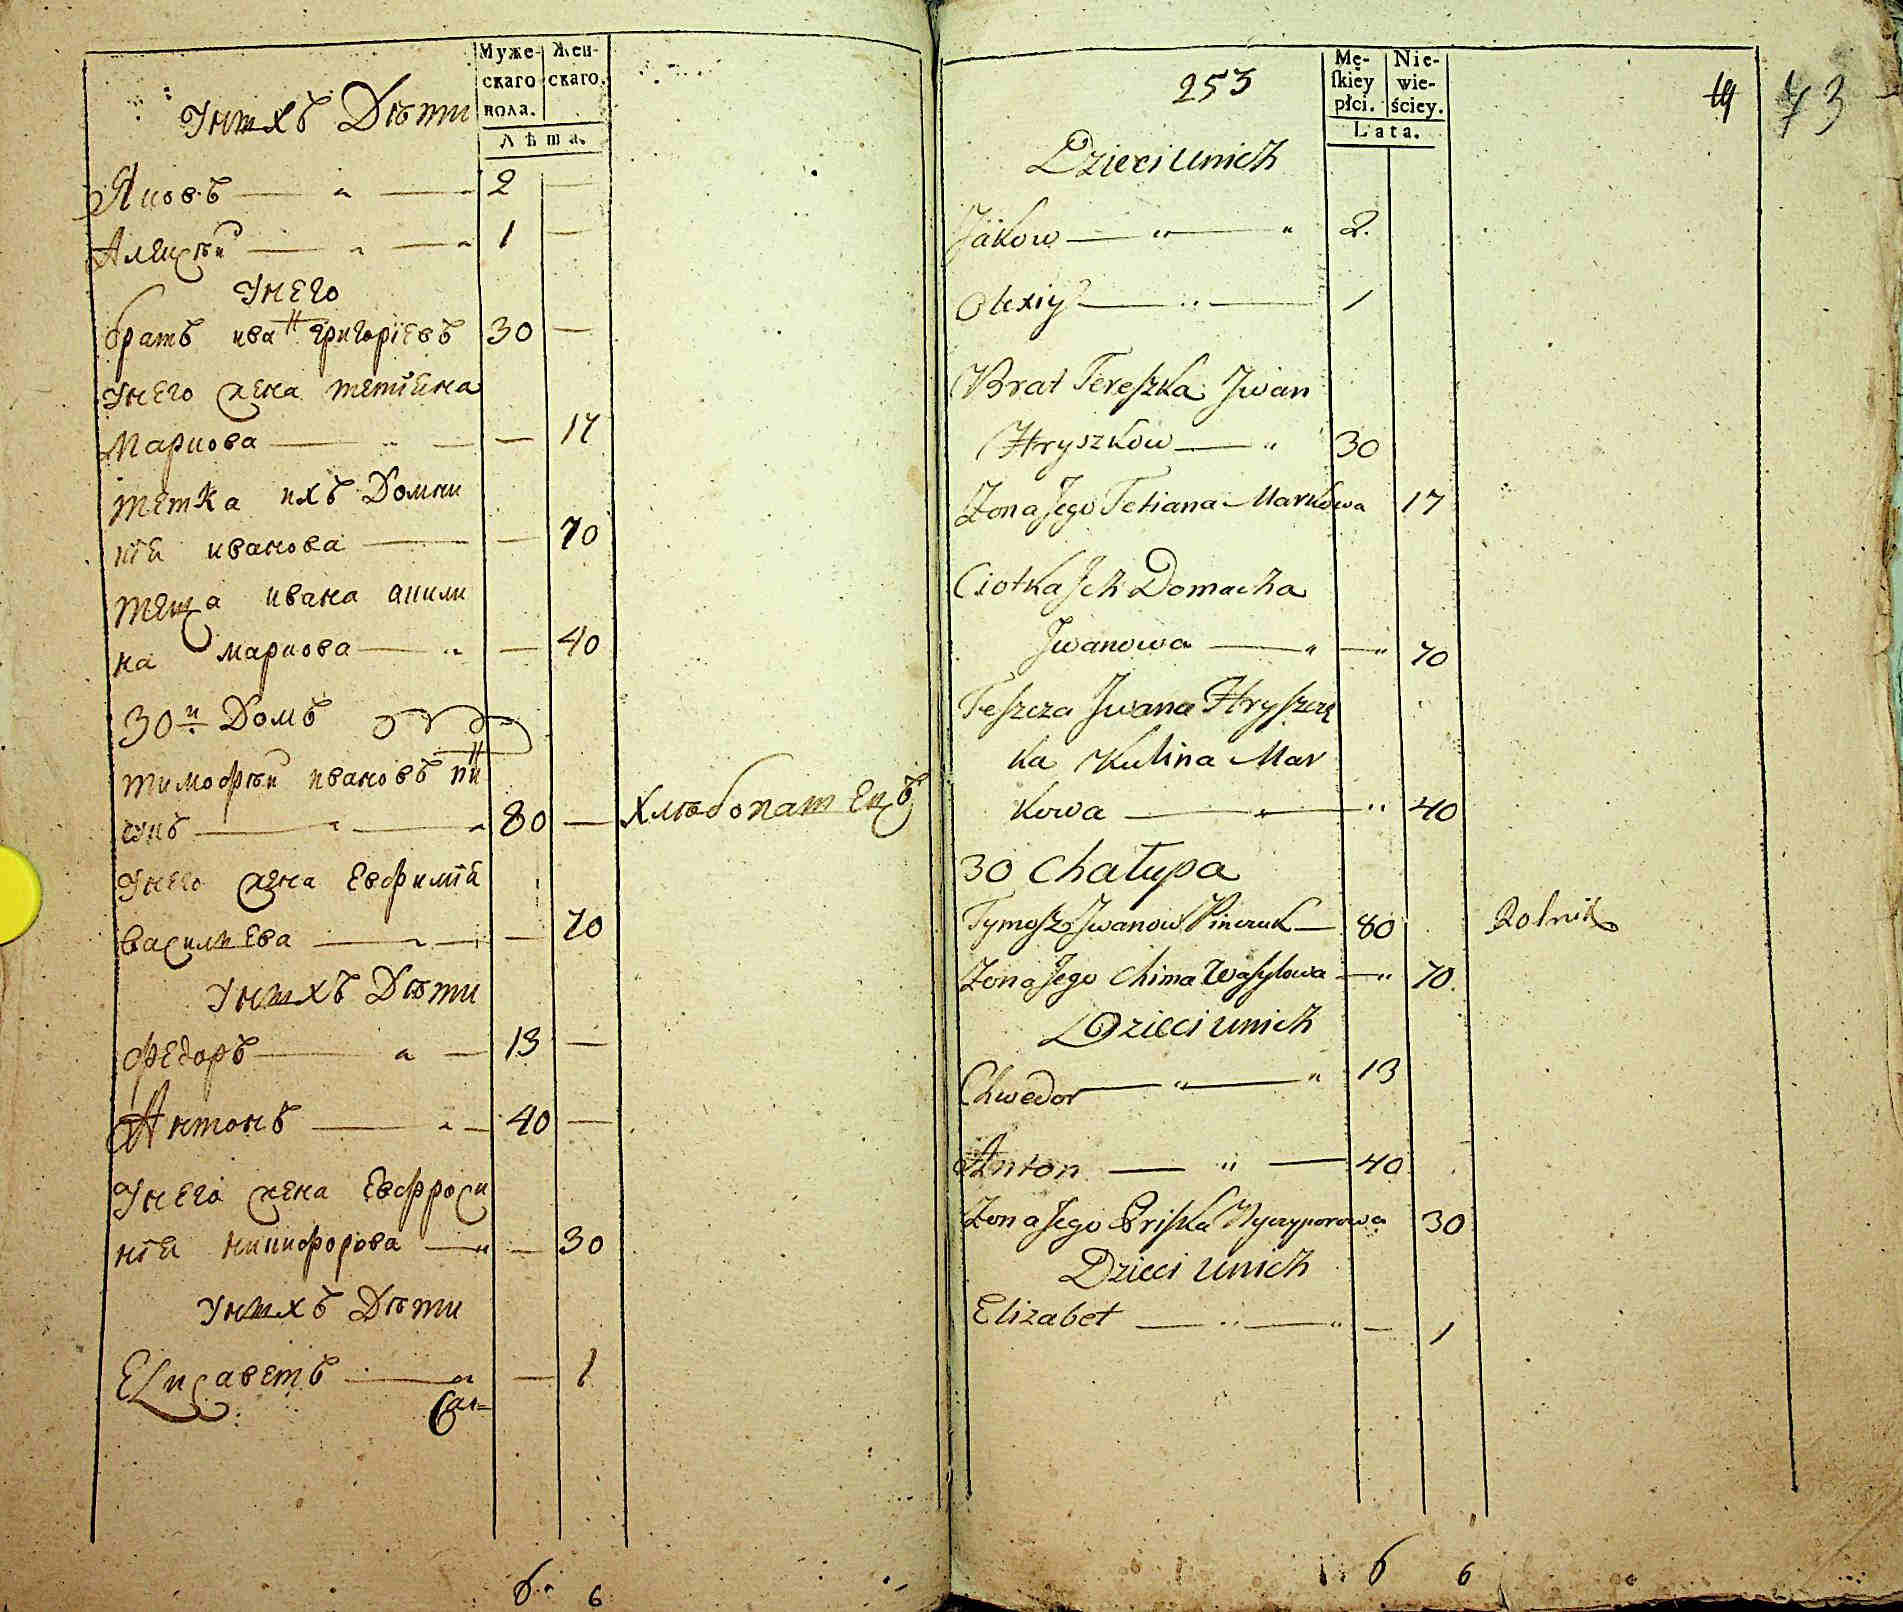 Муже-
скаго
пола.
Жен-
скаго.
Лѣта.
Унихъ Дѣти
Яковъ 2
Алексѣй 1
Унего
братъ иванъ григорїевъ 30
Унего жена тетїана
Маркова 17
тетка ихъ Домни
кїа иванова 70
теща ивана акили
на маркова 40
30й Домъ
тимофѣй ивановъ пин
чукъ 80 хлѣбопатецъ
Унего жена Евфимїа
василиева 70
Унихъ Дѣти
Федоръ 13
Антонъ 40
Унего жена Евфроси
нїа никифорова 30
Унихъ Дѣти
Елисаветъ 1
6 6
253
Mę-
skiey
płci.
Nie-
wie-
ściey.
Lata.
19 73
Dzieci unich
Jakow 2
Olexiy 1
Brat Tereszka Jwan
Hryszkow 30
Zona Jego Tetiana Markowa 17
Ciotka Jch Domacha
Jwanowa 70
Teszcza Jwana Hryszcz
ka Kulina Mar
kowa 40
30 Chałupa
Tymosz Jwanow Pinczuk 80 Rolnik
Zona Jego Chima Wasylowa 70
Dzieci unich
Chwedor 13
Anton 40
Zona Jego Priska Nyczyporowa 30
Dzieci unich
Elizabet 1
6 6